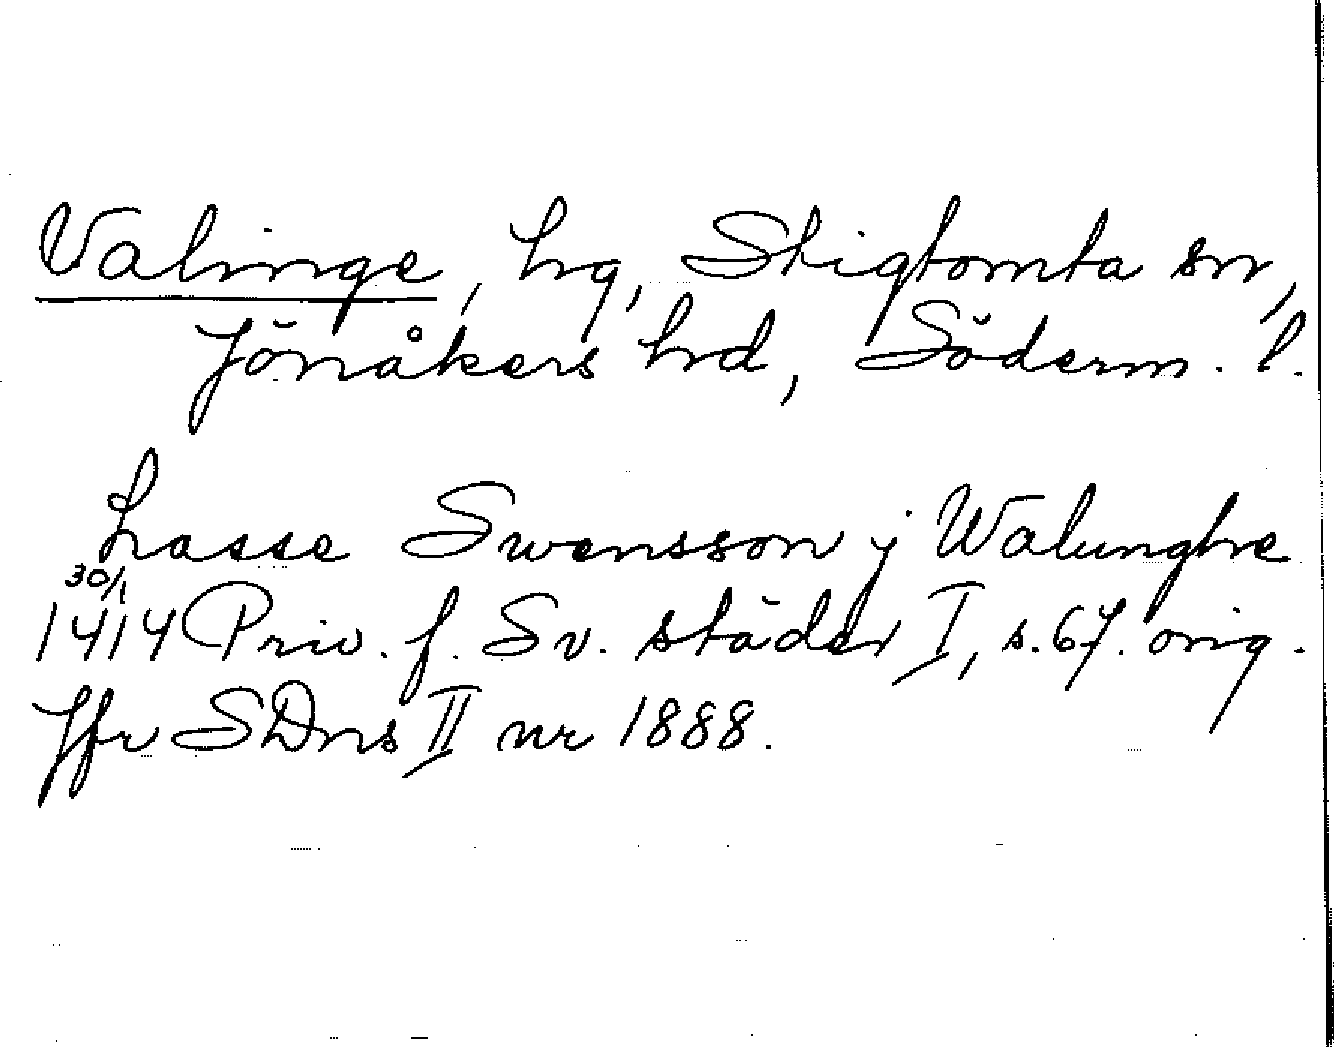 Valinge, hg, Stigtomta sn,
Jönåkers hd, Söderm. l.
Lasse Swensson j Walunghe
30/1
1414 Priv. f. Sv. städer I, s. 67. orig.
Jfr SDns II nr 1888.